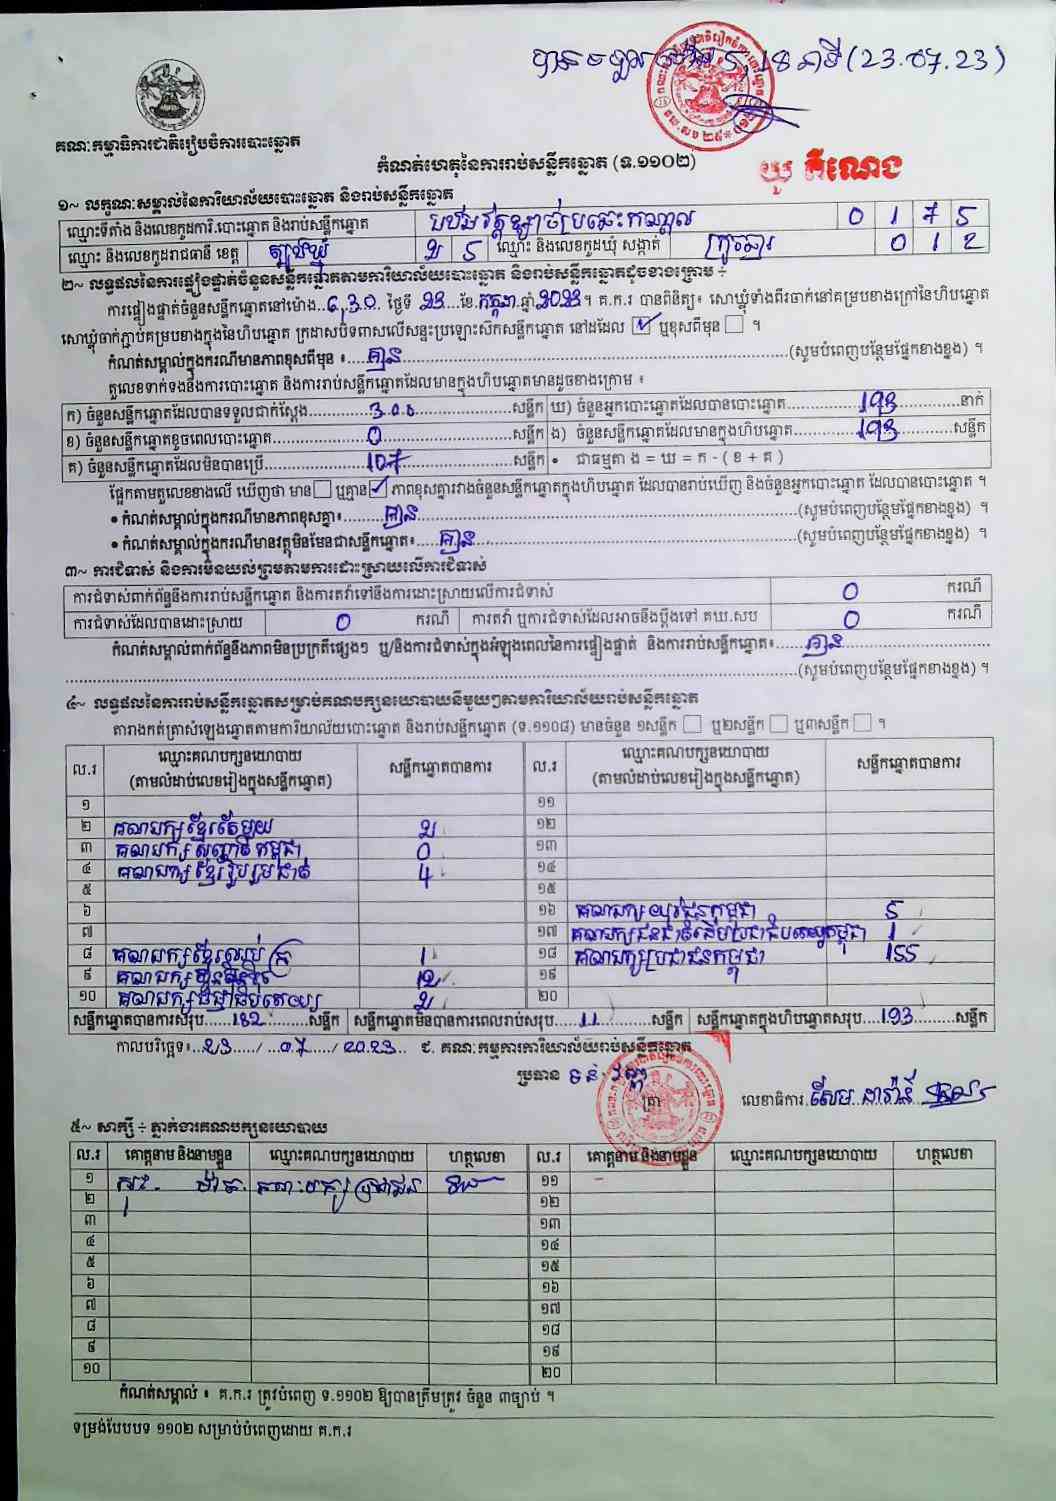 (23.07.23)
គណៈកម្មាធិការជាតិរៀបចំការបោះឆ្នោត
កំណត់ហេតុនៃការរាប់សន្លឹកឆ្នោត (ទ.១១០២)
១~ លក្ខណៈសម្គាល់នៃការិយាល័យបោះឆ្នោត និងរាប់សន្លឹកឆ្នោត
ឈ្មោះទីតាំង និងលេខកូដការិ.បោះឆ្នោត និងរាប់សន្លឹកឆ្នោត 0 1 7 5
ឈ្មោះ និងលេខកូដរាជធានី ខេត្ត ត្បូងឃ្មុំ 2 5 ឈ្មោះ និងលេខកូដឃុំ សង្កាត់ 0 1 2
២~ លទ្ធផលនៃការផ្ទៀងផ្ទាត់ចំនួនសន្លឹកឆ្នោតតាមការិយាល័យបោះឆ្នោត និងរាប់សន្លឹកឆ្នោតដូចខាងក្រោម ÷
ការផ្ទៀងផ្ទាត់ចំនួនសន្លឹកឆ្នោតនៅម៉ោង ថ្ងៃទី 23 ខែ កក្កដា ឆ្នាំ 2023 ។ គ.ក.រ បានពិនិត្យ៖ សោឃ្លុំទាំងពីរចាក់នៅគម្របខាងក្រៅនៃហិបឆ្នោត
សោឃ្លុំចាក់ភ្ជាប់គម្របខាងក្នុងនៃហិបឆ្នោត ក្រដាសបិទពាសលើសន្ទះប្រឡោះសឹកសន្លឹកឆ្នោត នៅដដែល ☑ ឬខុសពីមុន ☐ ។
កំណត់សម្គាល់ក្នុងករណីមានភាពខុសពីមុន ៖ គ្មាន (សូមបំពេញបន្ថែមផ្នែកខាងខ្នង) ។
តួលេខទាក់ទងនឹងការបោះឆ្នោត និងការរាប់សន្លឹកឆ្នោតដែលមានក្នុងហិបឆ្នោតមានដូចខាងក្រោម ៖
ក) ចំនួនសន្លឹកឆ្នោតដែលបានទទួលជាក់ស្តែង 300 សន្លឹក ឃ) ចំនួនអ្នកបោះឆ្នោតដែលបានបោះឆ្នោត 193 នាក់
ខ) ចំនួនសន្លឹកឆ្នោតខូចពេលបោះឆ្នោត 0 សន្លឹក ង) ចំនួនសន្លឹកឆ្នោតដែលមានក្នុងហិបឆ្នោត 193 សន្លឹក
គ) ចំនួនសន្លឹកឆ្នោតដែលមិនបានប្រើ 107 សន្លឹក • ជាធម្មតា ង = ឃ = ក - ( ខ + គ )
ផ្អែកតាមតួលេខខាងលើ ឃើញថា មាន ☐ ឬគ្មាន ☑ ភាពខុសគ្នារវាងចំនួនសន្លឹកឆ្នោតក្នុងហិបឆ្នោត ដែលបានរាប់ឃើញ និងចំនួនអ្នកបោះឆ្នោត ដែលបានបោះឆ្នោត ។
• កំណត់សម្គាល់ក្នុងករណីមានភាពខុសគ្នា៖ គ្មាន (សូមបំពេញបន្ថែមផ្នែកខាងខ្នង) ។
• កំណត់សម្គាល់ក្នុងករណីមានវត្ថុមិនមែនជាសន្លឹកឆ្នោត៖ គ្មាន (សូមបំពេញបន្ថែមផ្នែកខាងខ្នង) ។
៣~ ការជំទាស់ និងការមិនយល់ព្រមតាមការដោះស្រាយលើការជំទាស់
ការជំទាស់ពាក់ព័ន្ធនឹងការរាប់សន្លឹកឆ្នោត និងការតវ៉ាទៅនឹងការដោះស្រាយលើការជំទាស់ 0 ករណី
ការជំទាស់ដែលបានដោះស្រាយ 0 ករណី ការតវ៉ា ឬការជំទាស់ដែលអាចនឹងប្តឹងទៅ គឃ.សប 0 ករណី
កំណត់សម្គាល់ពាក់ព័ន្ធនឹងភាពមិនប្រក្រតីផ្សេងៗ ឬ/និងការជំទាស់ក្នុងអំឡុងពេលនៃការផ្ទៀងផ្ទាត់ និងការរាប់សន្លឹកឆ្នោត៖ គ្មាន
(សូមបំពេញបន្ថែមផ្នែកខាងខ្នង) ។
៤~ លទ្ធផលនៃការរាប់សន្លឹកឆ្នោតសម្រាប់គណបក្សនយោបាយនីមួយៗតាមការិយាល័យរាប់សន្លឹកឆ្នោត
តារាងកត់ត្រាសំឡេងឆ្នោតតាមការិយាល័យបោះឆ្នោត និងរាប់សន្លឹកឆ្នោត (ទ.១១០៨) មានចំនួន ១សន្លឹក ☐ ឬ២សន្លឹក ☐ ឬ៣សន្លឹក ☐ ។
ល.រ ឈ្មោះគណបក្សនយោបាយ (តាមលំដាប់លេខរៀងក្នុងសន្លឹកឆ្នោត) សន្លឹកឆ្នោតបានការ ល.រ ឈ្មោះគណបក្សនយោបាយ (តាមលំដាប់លេខរៀងក្នុងសន្លឹកឆ្នោត) សន្លឹកឆ្នោតបានការ
១ ១១
២ គណបក្សខ្មែរតែមួយ 2 ១២
៣ គណបក្ស សញ្ជាតិកម្ពុជា 0 ១៣
៤ គណបក្សខ្មែររួបរួមជាតិ 4 ១៤
៥ ១៥
៦ ១៦ គណបក្សយុវជនកម្ពុជា 5
៧ ១៧ 1
៨ គណបក្ស 1 ១៨ គណបក្សប្រជាជនកម្ពុជា 155
៩ គណបក្ស 12 ១៩
១០ គណបក្សធម្មាធិបតេយ្យ 2 ២០
សន្លឹកឆ្នោតបានការសរុប 182 សន្លឹក សន្លឹកឆ្នោតមិនបានការពេលរាប់សរុប 11 សន្លឹក សន្លឹកឆ្នោតក្នុងហិបឆ្នោតសរុប 193 សន្លឹក
កាលបរិច្ឆេទ៖ 23 / 07 / 2023 ៩. គណៈកម្មការការិយាល័យរាប់សន្លឹកឆ្នោត
ប្រធាន
ត្រា លេខាធិការ
៥~ សាក្សី ÷ ភ្នាក់ងារគណបក្សនយោបាយ
ល.រ គោត្តនាម និងនាមខ្លួន ឈ្មោះគណបក្សនយោបាយ ហត្ថលេខា ល.រ គោត្តនាម និងនាមខ្លួន ឈ្មោះគណបក្សនយោបាយ ហត្ថលេខា
១ គណៈបក្ស ប្រជាជន ១១
២ ១២
៣ ១៣
៤ ១៤
៥ ១៥
៦ ១៦
៧ ១៧
៨ ១៨
៩ ១៩
១០ ២០
កំណត់សម្គាល់ ៖ គ.ក.រ ត្រូវបំពេញ ទ.១១០២ ឱ្យបានត្រឹមត្រូវ ចំនួន ៣ច្បាប់ ។
ទម្រង់បែបបទ ១១០២ សម្រាប់បំពេញដោយ គ.ក.រ